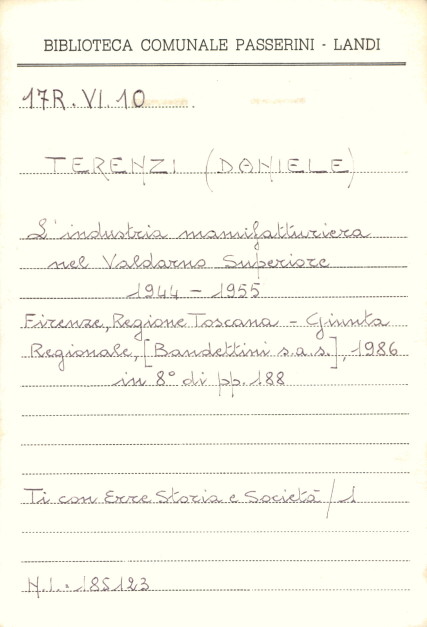 BIBLIOTECA COMUNALE PASSERINI - LANDI
17R.VI.10
TERENZI (DANIELE)
L'industria manifatturiera
nel Valdarno Superiore
1944 - 1955
Firenze, Regione Toscana - Giunta
Regionale, [Bandettini s.a.s.], 1986
in 8° di pp. 188
Ti con Erre Storia e Società / 1
N.I.: 185123